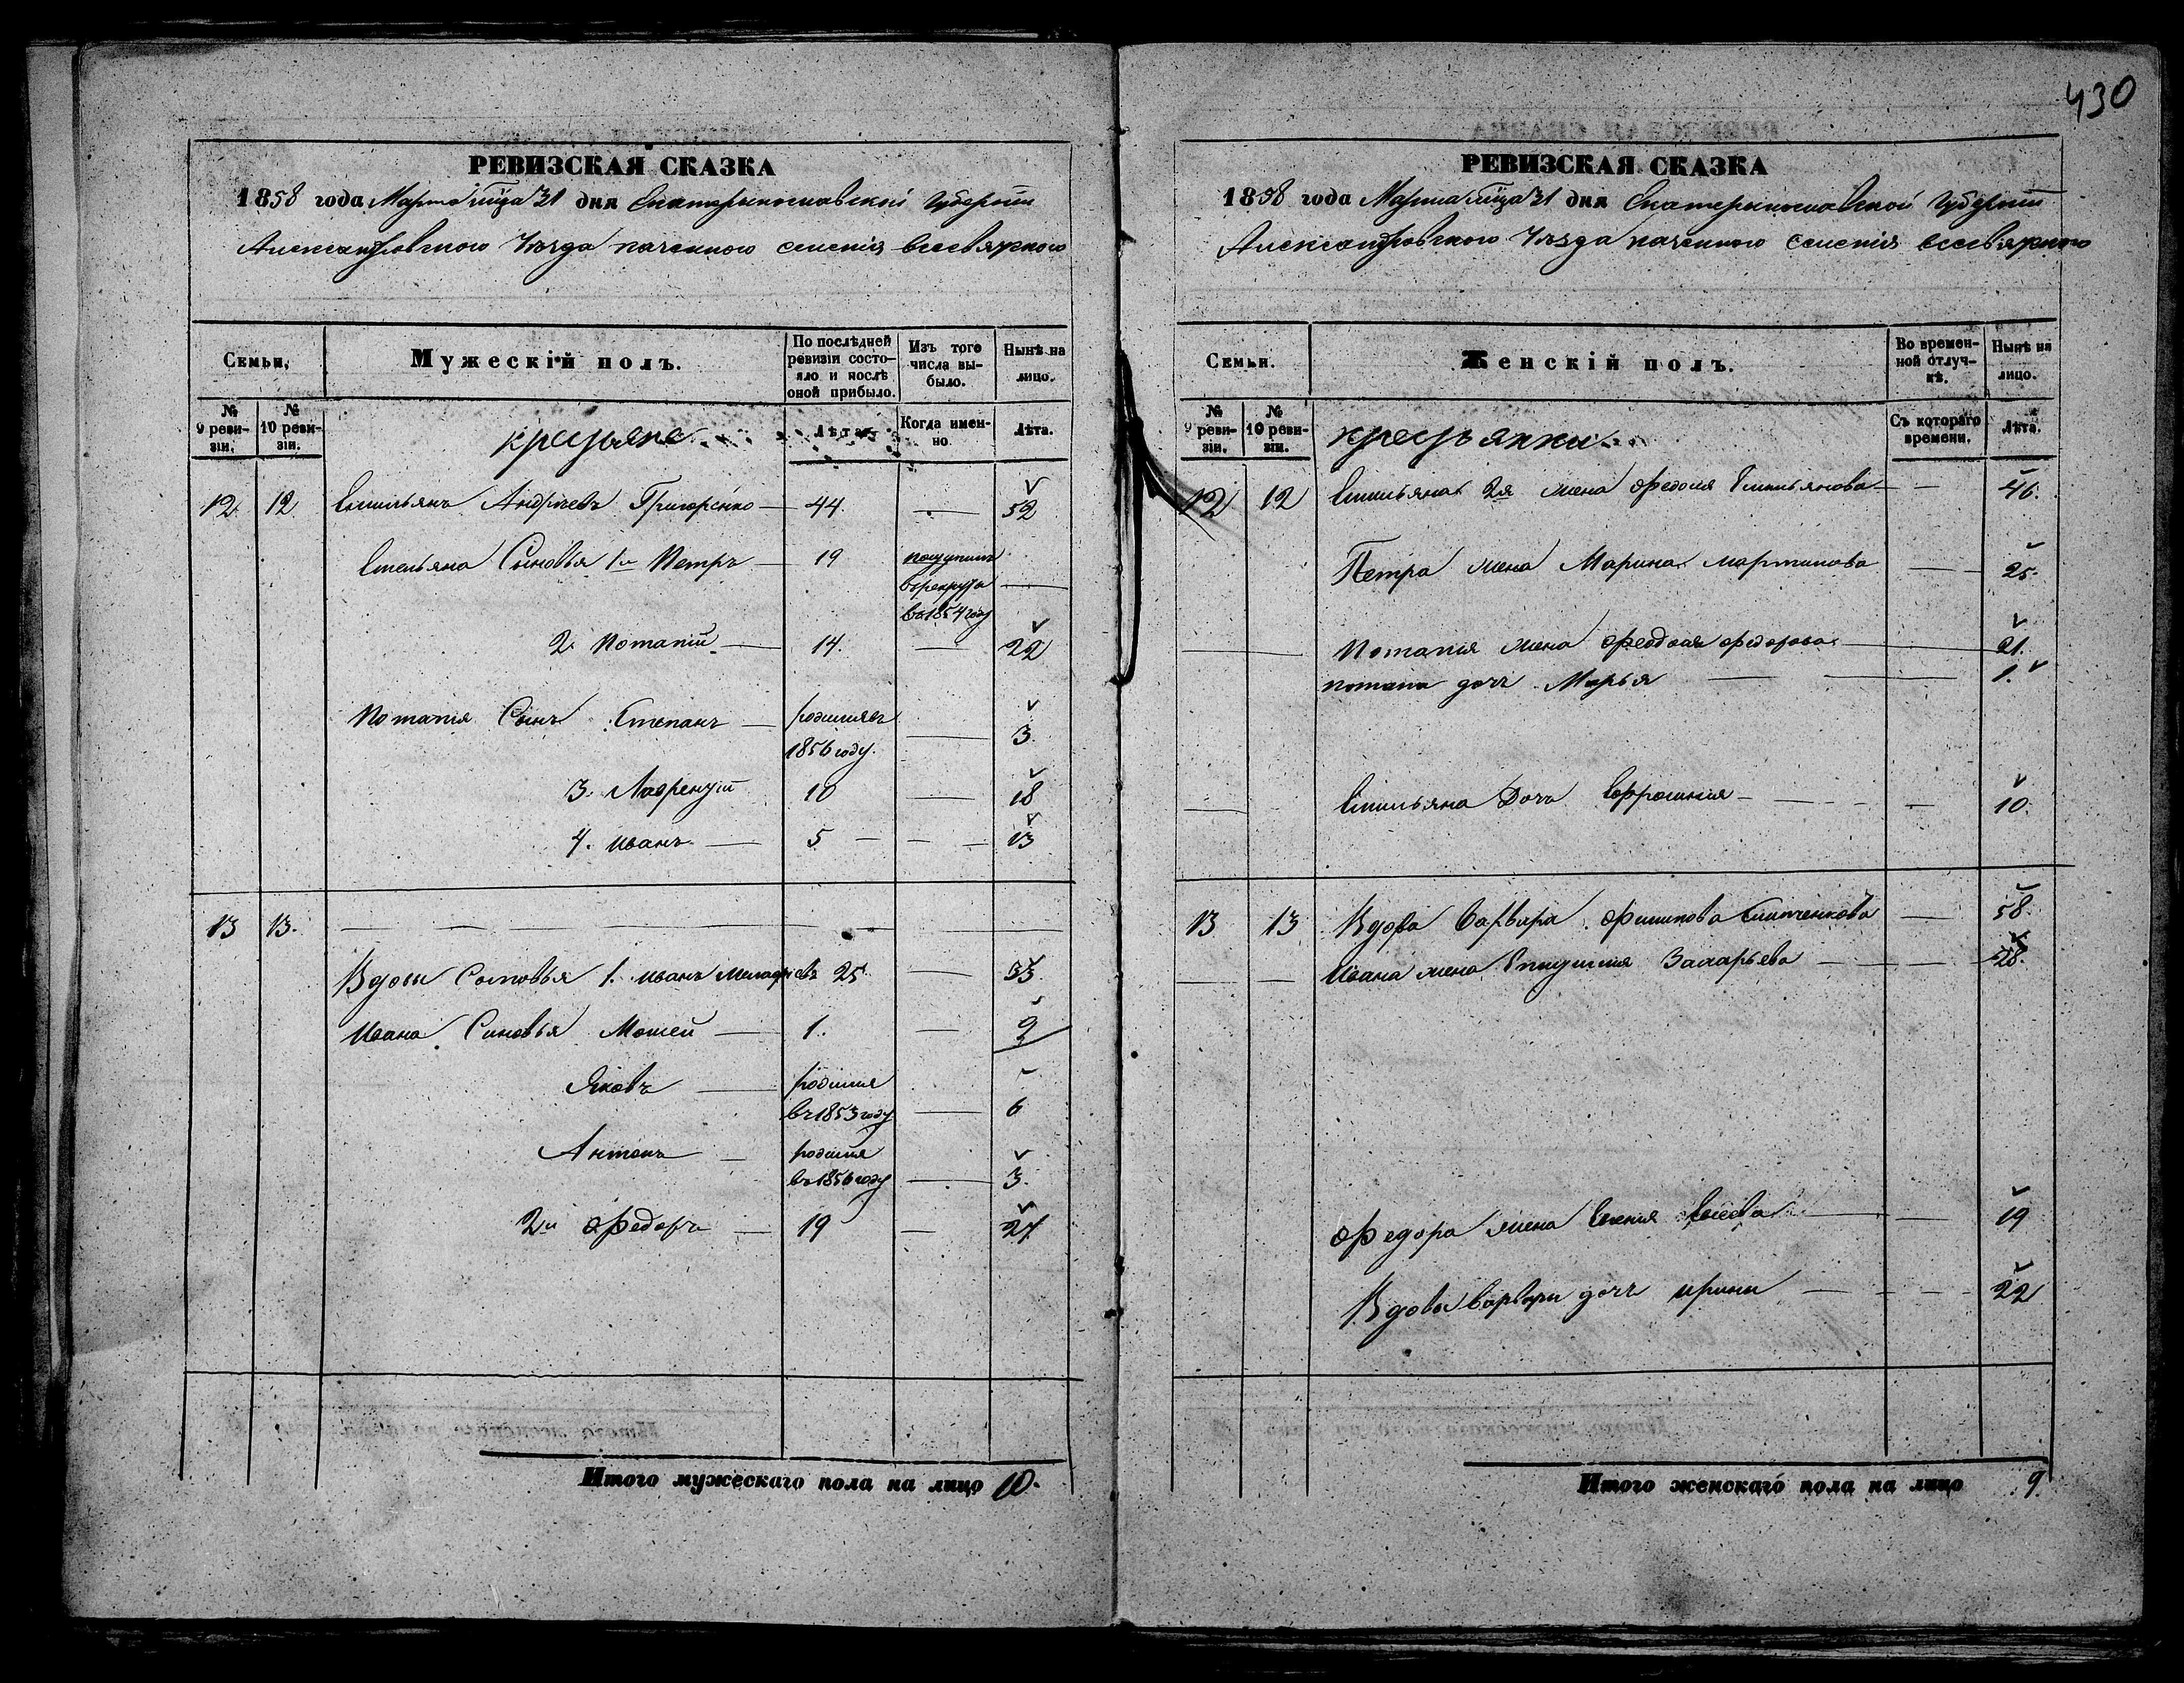 430
РЕВИЗСКАЯ СКАЗКА
1858 года Марта мца 31 дня Екатеринославской Губернии
Александровского Уезда казенного селения Веселяркого
Семьи.
Мужескій полъ.
По послѣдней ревизіи состояло и послѣ оной прибыло.
Изъ того числа выбыло.
Нынѣ на лицо.
№ 9 ревизіи.
№ 10 ревизіи.
крестьяне
Лѣта.
Когда именно.
Лѣта.
12 12 Емильянъ Андріевъ Григоренко 44. 52
Емельяна Сыновья 1й Петръ 19 поступилъ
в рекруты
въ 1854 году
2. Потапій 14. 22
Потапія Сынъ Степанъ родился въ 3.
1856 году.
3. Лаврентій 10 18
4. иванъ 5 13
13 13.
Вдовы Сыновья 1. иванъ 25 33.
Ивана Синовья Мойсей 1. 9
Яковъ родился
въ 1853 году 6
Антонъ родился
въ 1856 году 3.
2й Федоръ 19 27.
Итого мужескаго пола на лицо 10.
РЕВИЗСКАЯ СКАЗКА
1858 года Марта мца 31 дня Екатеринославской Губернии
Александровского Уезда казенного селения Веселяркого
Семьи.
Женскій полъ.
Во временной отлучкѣ.
Нынѣ на лицо.
№ 9 ревизіи.
№ 10 ревизіи.
крестьянки
Съ котораго времени.
Лѣта.
12 12 Емильяна 2я жена Федосия Емильянова 46.
Петра жена Марина мартинова 25.
Потапия жена Феодосия Федорова 21.
потапа дочь Марья 1.
Емильяна Дочь Евфросиния 10.
13 13 Вдова Варвара Филипова 58.
Ивана жена Захарьева 28.
Федора жена Евсеева 19
Вдовы варвары дочь ирина 22
Итого женскаго пола на лицо 9.